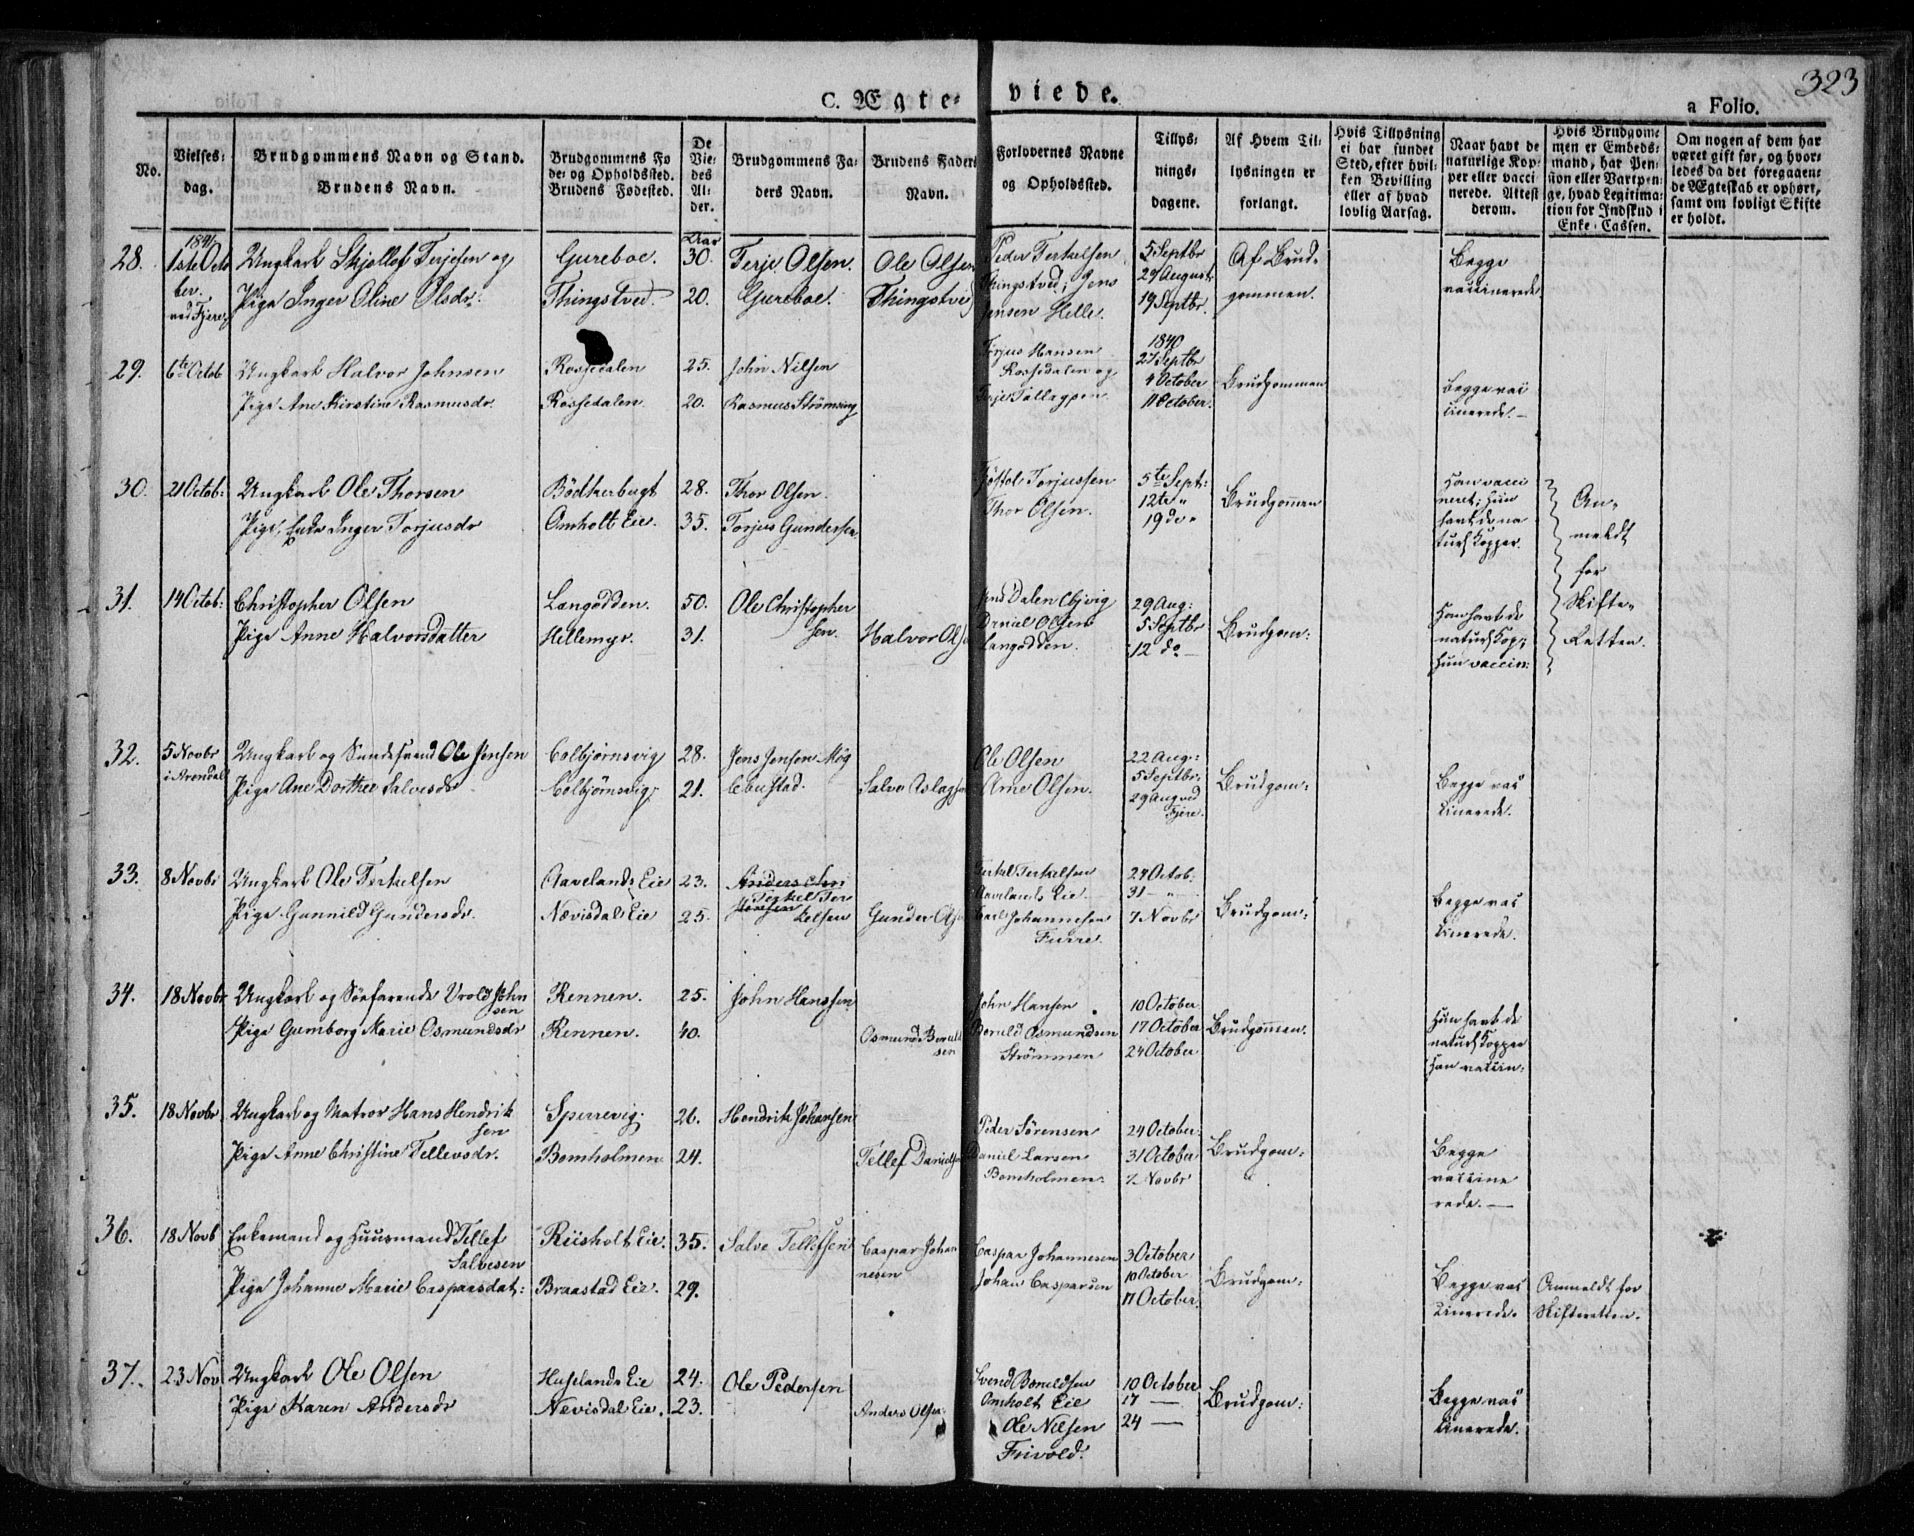 323
C. Ægte- viede.
a Folio.
No.
Vielses-
dag.
Brudgommens Navn og Stand.
Brudens Navn.
Brudgommens Fø
de- og Opholdssted.
Brudens Fødested.
De
Vie-
des
Al-
der.
Brudgommens Fa-
ders Navn.
Brudens Faders
Navn.
Forlovernes Navne
og Opholdssted.
Tillys-
nings-
dagene.
Af Hvem Til-
lysningen er
forlangt.
Hvis Tillysning
ei har fundet
Sted, efter hvil-
ken Bevilling
eller af hvad
lovlig Aarsag.
Naar havt de
naturlige Kop-
per eller vacci
nerede. Attest
derom.
Hvis Brudgom-
men er Embeds-
mand, har Pen-
sion eller Vartpen-
ge, hvad Legitima-
tion for Indskud i
Enke-Cassen.
Om nogen af dem har
været gift før, og hvor-
ledes da det foregaaen-
de Ægteskab er ophørt,
samt om lovligt Skifte
er holdt.
28. 1ste Octo
ber.
ved Fjere
Ungkarl Skjollef Terjesen og
Pige Inger Oline Olsdr:
Gureboe.
Thingstved.
Aar
30.
20.
Terje Olsen.
Gureboe.
Ole Olsen
Thingstved
Peder Terkelsen
Thingstved, Jens
Jensen Helle.
5 Septbr
29 August
19 Septbr.
Af Brud-
gommen.
Begge
vaccinerede
29. 6te Octob
Ungkarl Halvor Johnsen
Pige Ane Kirstine Rasmusdr.
Rossedalen
Rossedalen
25.
20.
John Nilsen
Rasmus Strømsing
Terjus Hansen
Rossedalen og
Terje
1840
27 Septbr
4 October
11 October.
Brudgommen
Begge vac
cinerede.
30. 21 Octob:
Ungkarl Ole Thorsen
Pige, Enke Inger Torjusdr
Bödkerbugt
Omholt Eie.
28.
35.
Thor Olsen.
Torjus Gundersen
Torjussen
Thor Olsen.
5te Sept:
12te "
19 de "
Brudgommen
Han vacci
neret; hun
havt de na
turl Kopper.
An-
meldt
for
Skifte-
Retten.
31. 14 Octob:
Christopher Olsen
Pige Anne Halvorsdatter
Langodden.
Hillemyr.
50.
31.
Ole Christopher
sen.
Halvor Olse
Daniel Olsen
Langodden.
29 Aug:
5 Septbr
12 do
Brudgom:
Han havt de
naturl Kop:
hun vaccin:
32. 5 Novbr
i Arendal
Ungkarl og Ole Jensen
Pige Ane Dorthee Salvesdr
Colbjørnsvig
Colbjørnsvig
28.
21.
Jens Jensen
Salve Aslagsen
Ole Olsen
Arne Olsen.
22 Aug:
5 Septbr:
29 Aug ved
Fjere.
Brudgom:
Begge vac
cinerede.
33. 8 Novbr
Ungkarl Ole Terkelsen
Pige Gunnild Gundersdr.
Aavelands Eie
Nævisdal Eie
23.
25.
Terkel Ter
kelsen
Gunder Ols
Terkel Terkelsen
Aavelands Eie.
Carl Johannesen
Furre.
24 Octob:
31
7 Novbr
Brudgom:
Begge vac
cinerede.
34. 18 Novbr
Ungkarl og Søefarende Vrold John
sen
Pige Gumborg Marie Osmundsdr
Rennen.
Rennen.
25.
40.
John Hanssen
Osmund Beruld
sen
John Hansen
Beruld Osmundsen
Strømmen
10 October
17 October
24 October
Brudgommen.
Hun havt de
naturl Kopper
Han vaccin:
35. 18 Novbr
Ungkarl og Matros Hans Hendrik
sen
Pige Anne Christine Tellevsdr.
Sperrevig.
Bomholmen
26.
24.
Hendrik Johansen
Tellef Daniels
Peder Sørensen
Daniel Larsen
Bomholmen.
24 October:
31 October
7 Novbr
Brudgom:
Begge
vaccine
rede.
36. 18 Novb
Enkemand og Huusmand Tellef
Salvesen
Pige Johanne Marie Casparsdat:
Riisholt Eie.
Braastad Eie.
35.
29.
Salve Tellefsen
Caspar Johan
nesen
Caspar Johannesen
Johan Caspersen
3 October
10 October
17 October.
Brudgom:
Begge vac
cinerede.
Anmeldt for
Skifteretten.
37. 23 Nov
Ungkarl Ole Olsen
Pige Karen Andersdr
Huselands Eie
Nævisdal Eie.
24.
23.
Ole Pedersen
Anders Olsen
Svend Beruldsen
Omholt Eie
Ole Nilsen
Frivold.
10 October
17
24
Brudgom:
Begge vac
cinerede.